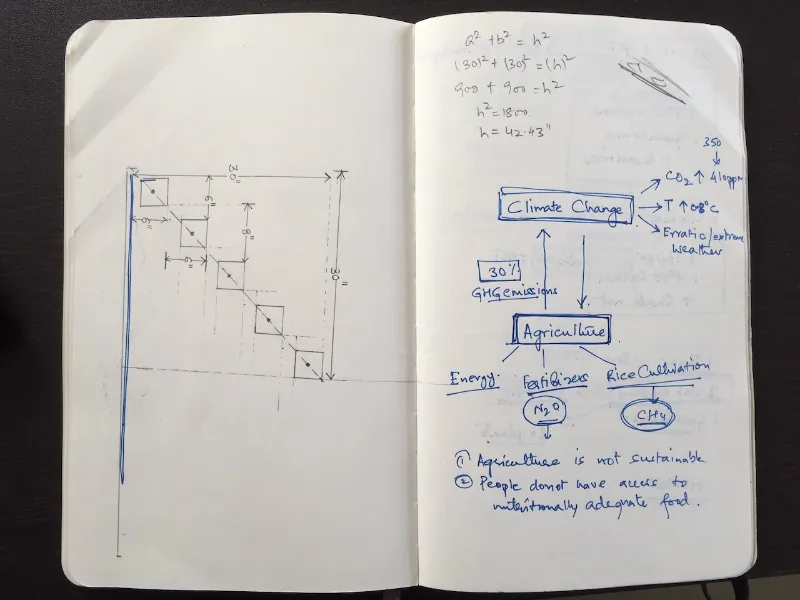 30"
6"
8"
6"
6"
30"
a² + b² = h²
(30)² + (30)² = (h)²
900 + 900 = h²
h² = 1800
h = 42.43"
350
CO₂ ↑ 410ppm
Climate Change
T ↑ 0.8°C
Erratic/extreme
weather
30%
GHG emissions
Agriculture
Energy Fertilizers Rice Cultivation
N₂O CH₄
① Agriculture is not sustainable.
② People donot have access to
nutritionally adequate food.